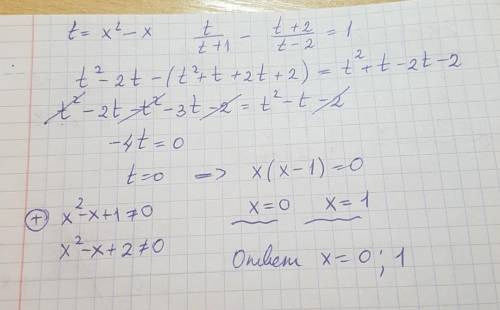 t = x² − x   t/(t+1) − (t+2)/(t−2) = 1
t² − 2t − (t² + t + 2t + 2) = t² + t − 2t − 2
t² − 2t − t² − 3t − 2 = t² − t − 2
−4t = 0
t = 0 => x(x−1) = 0
+ x² − x + 1 ≠ 0   x = 0   x = 1
x² − x + 2 ≠ 0   Ответ x = 0; 1